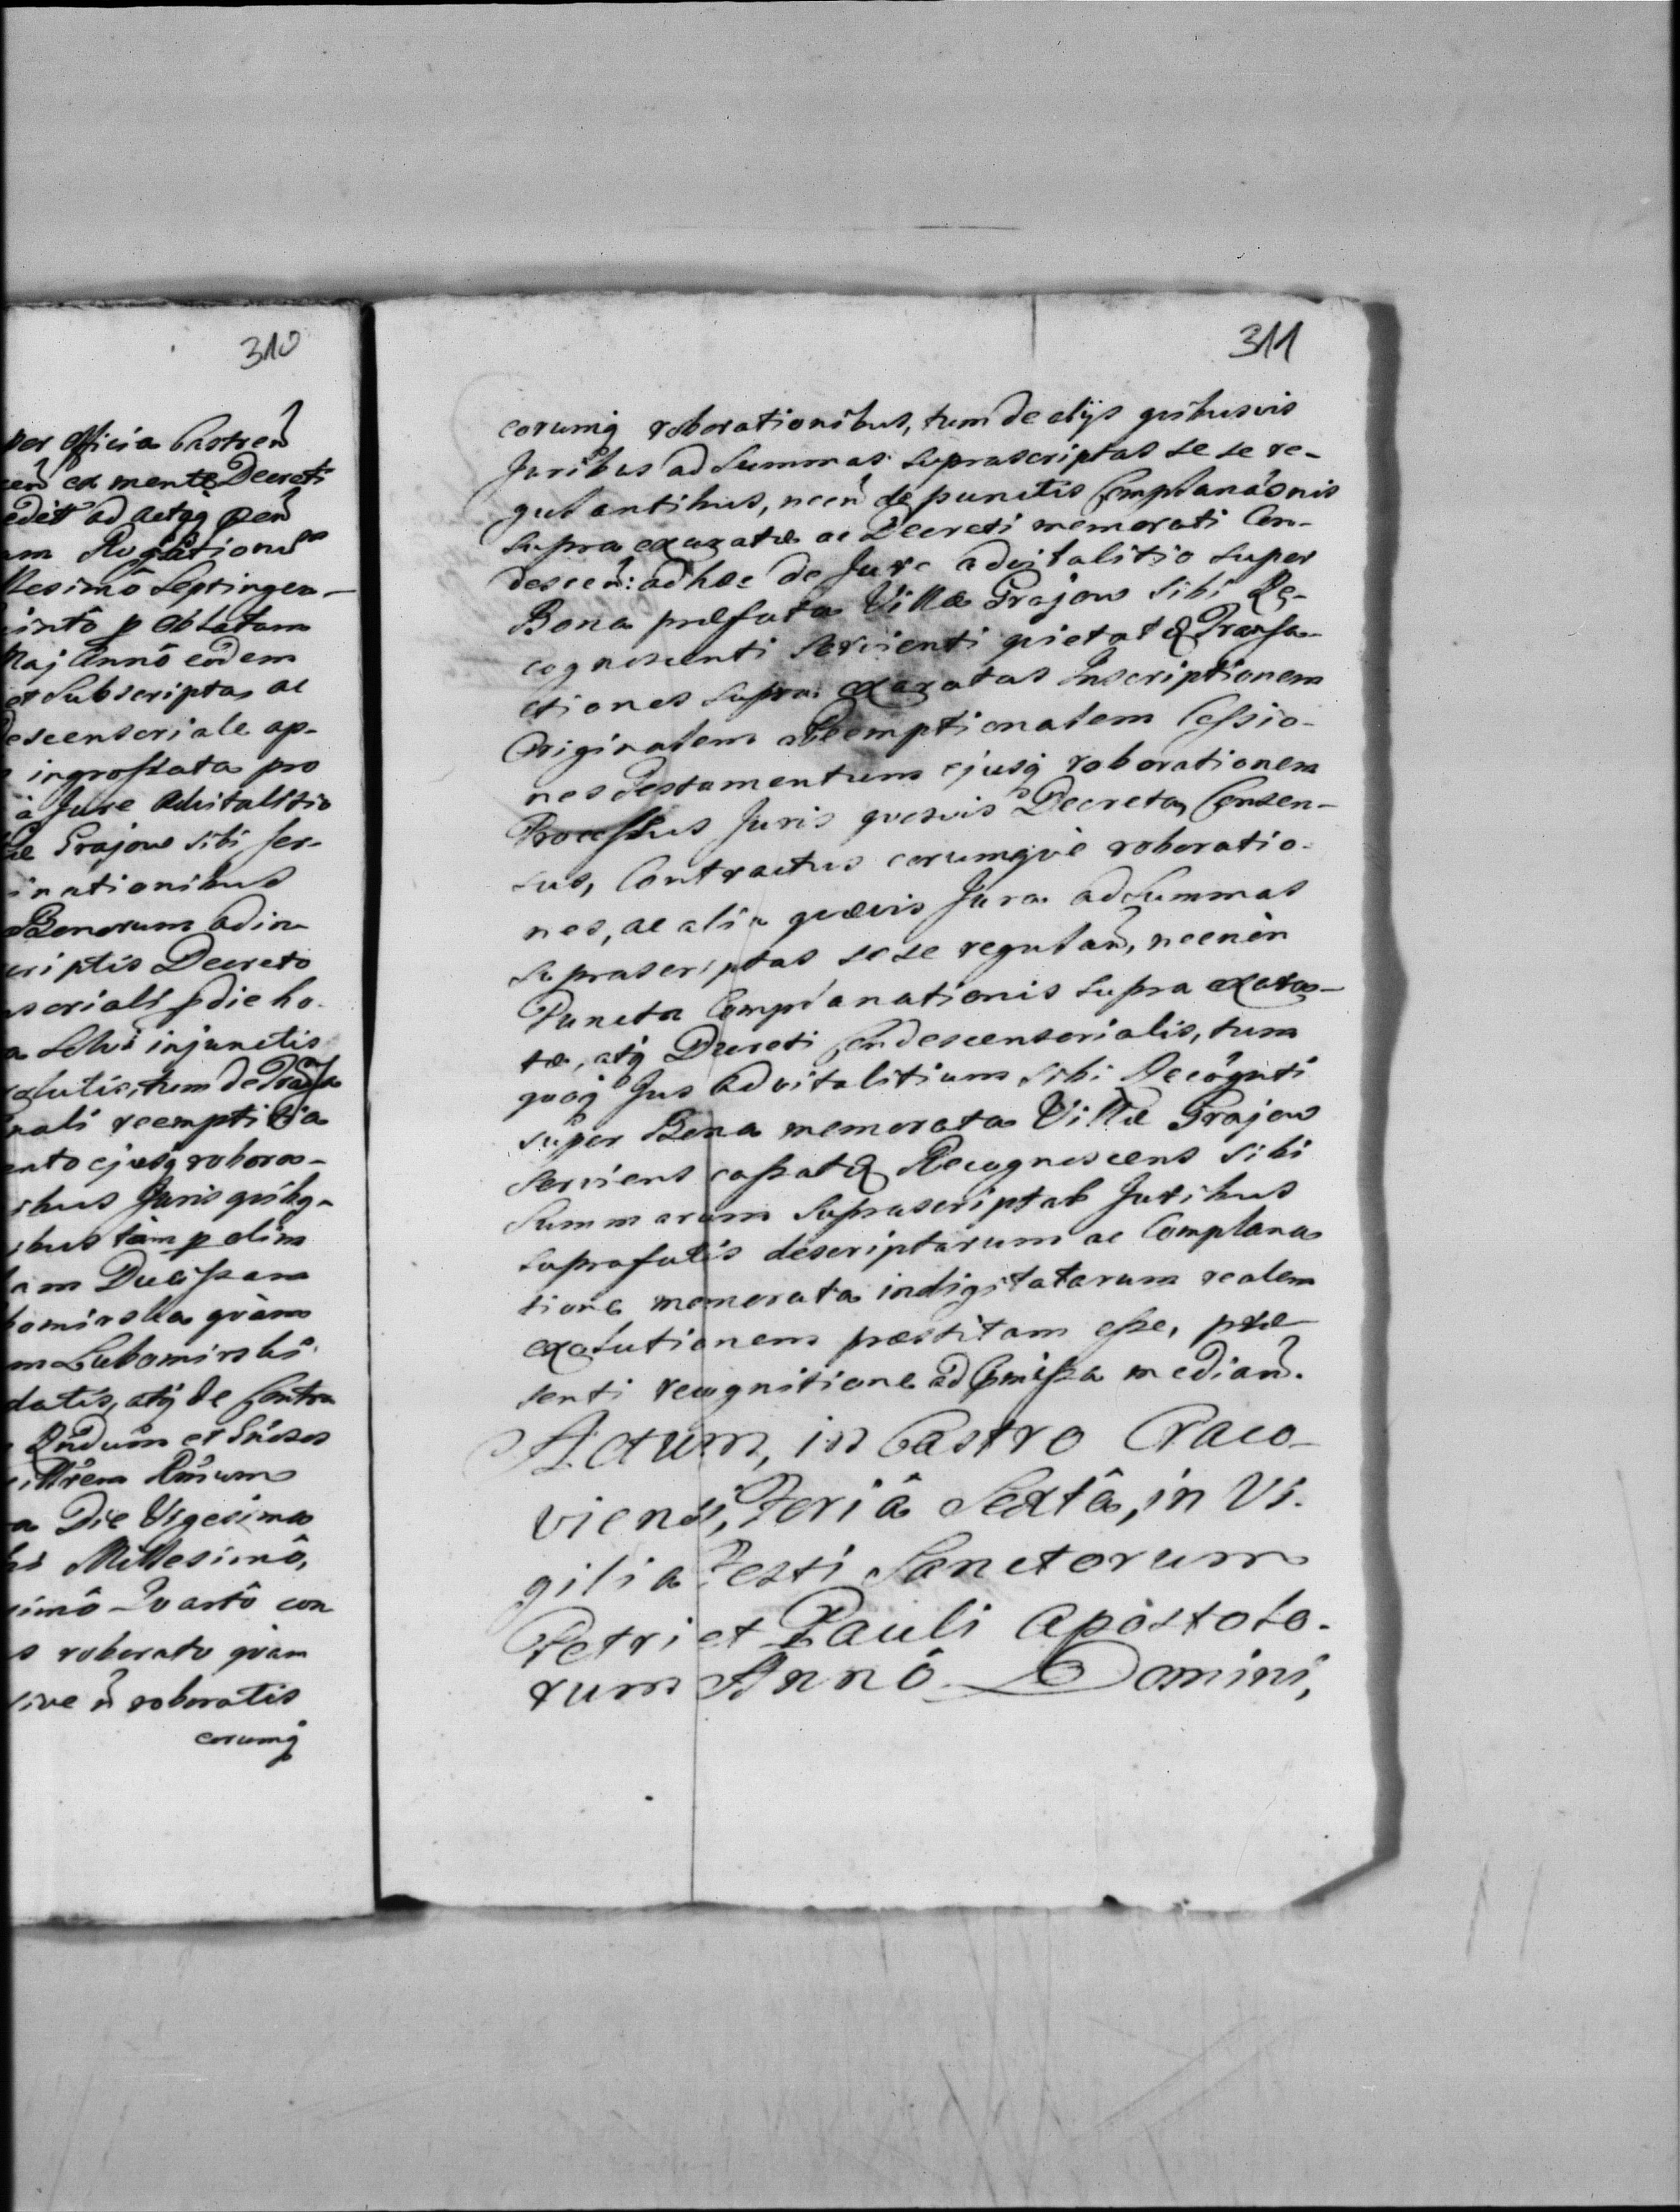 310
per officia Castren
cen ex mente Decreti
edit ad actaq pen
am Rogationu
llesimô Septingen-
intô p Oblatam
Maj Annô eodem
et Subscripta ac
escensoriale ap-
ingrossata pro
à Jure Advitalitio
æ Grajow sibi ser-
inationibus
Bonorum adin
criptis Decreto
nsoriali p die ho-
injunctis
olutis, tum de Transa
nali reemptitia
ento ejusq robora-
ibus Juris quibq-
ibus tàm p olim
am Ducissam
bomirska quàm
m Lubomirski
datis, atq de Contra
a Die Vigesima
Millesimô,
simô Quartô con
s roborato quàm
sive ñ roboratis
corumq
311
eorumq roborationibus, tum de alijs quibusvis
Juribus ad Summas supra scriptas se se re-
gulantibus, necn de punctis Complanaonis
supra exaratæ ac Decreti memorati Con-
descen: adhæc de Jure advitalitio super
Bona præfata Villæ Grajow sibi Re-
cognoscenti servienti quietat & Transa-
ctiones supra exaratas Inscriptionem
Originalem Reemptionalem Cessio-
nes Testamentum ejusq roborationem
Processus Juris quosvis Decreta, Consen-
sus, Contractus eorumque roboratio-
nes, ac alia quævis Jura ad Summas
supra scriptas se se regulan, necnon
Puncta Complanationis supra exara-
tæ, atq Decreti Condescensorialis, tum
quoq Jus advitalitium sibi Recognti
super Bona memorata Villæ Grajow
serviens cassat & Recognoscens sibi
Summarum suprascriptar Juribus
suprafatis descriptarum ac Complana
tione memorata indigitatarum realem
exolutionem præstitam esse, præ-
senti recognitione ad pmissa median.
Actum, in Castro Craco-
viensi, Feriâ Sextâ, in Vi-
gilia Festi Sanctorum
Petri et Pauli Apostolo-
rum Annô Domini,